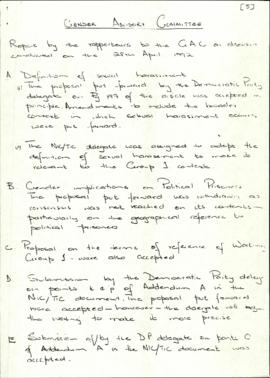 [5]
GENDER ADVISORY COMMITTEE
Report by the rapporteurs to the GAC on discussions
conducted on the 28th April 1992
A Definition of sexual harassment
i) The proposal put forward by the Democratic Party
delegate on was accepted in
principle. Amendments to include the broader
context in which sexual harassment occurs
were put forward.
ii) The NIC/TIC delegate was assigned to adapt the
definition of sexual harassment to make it
relevant to the Group 1 context
B. Gender implications on Political Prisoners
The proposal put forward was withdrawn as
consensus was not reached on its contents -
particularly on the geographical reference to
political prisoners
C Proposal on the terms of reference of Working
Group 1 - were also accepted
D Submission by the Democratic Party delegate
on points of Addendum A in the
NIC/TIC document. The proposal put forward
were accepted - however - the delegate
the wording to make it more precise
E Submission by the DP delegate on point C
of Addendum A in the NIC/TIC document was
accepted.